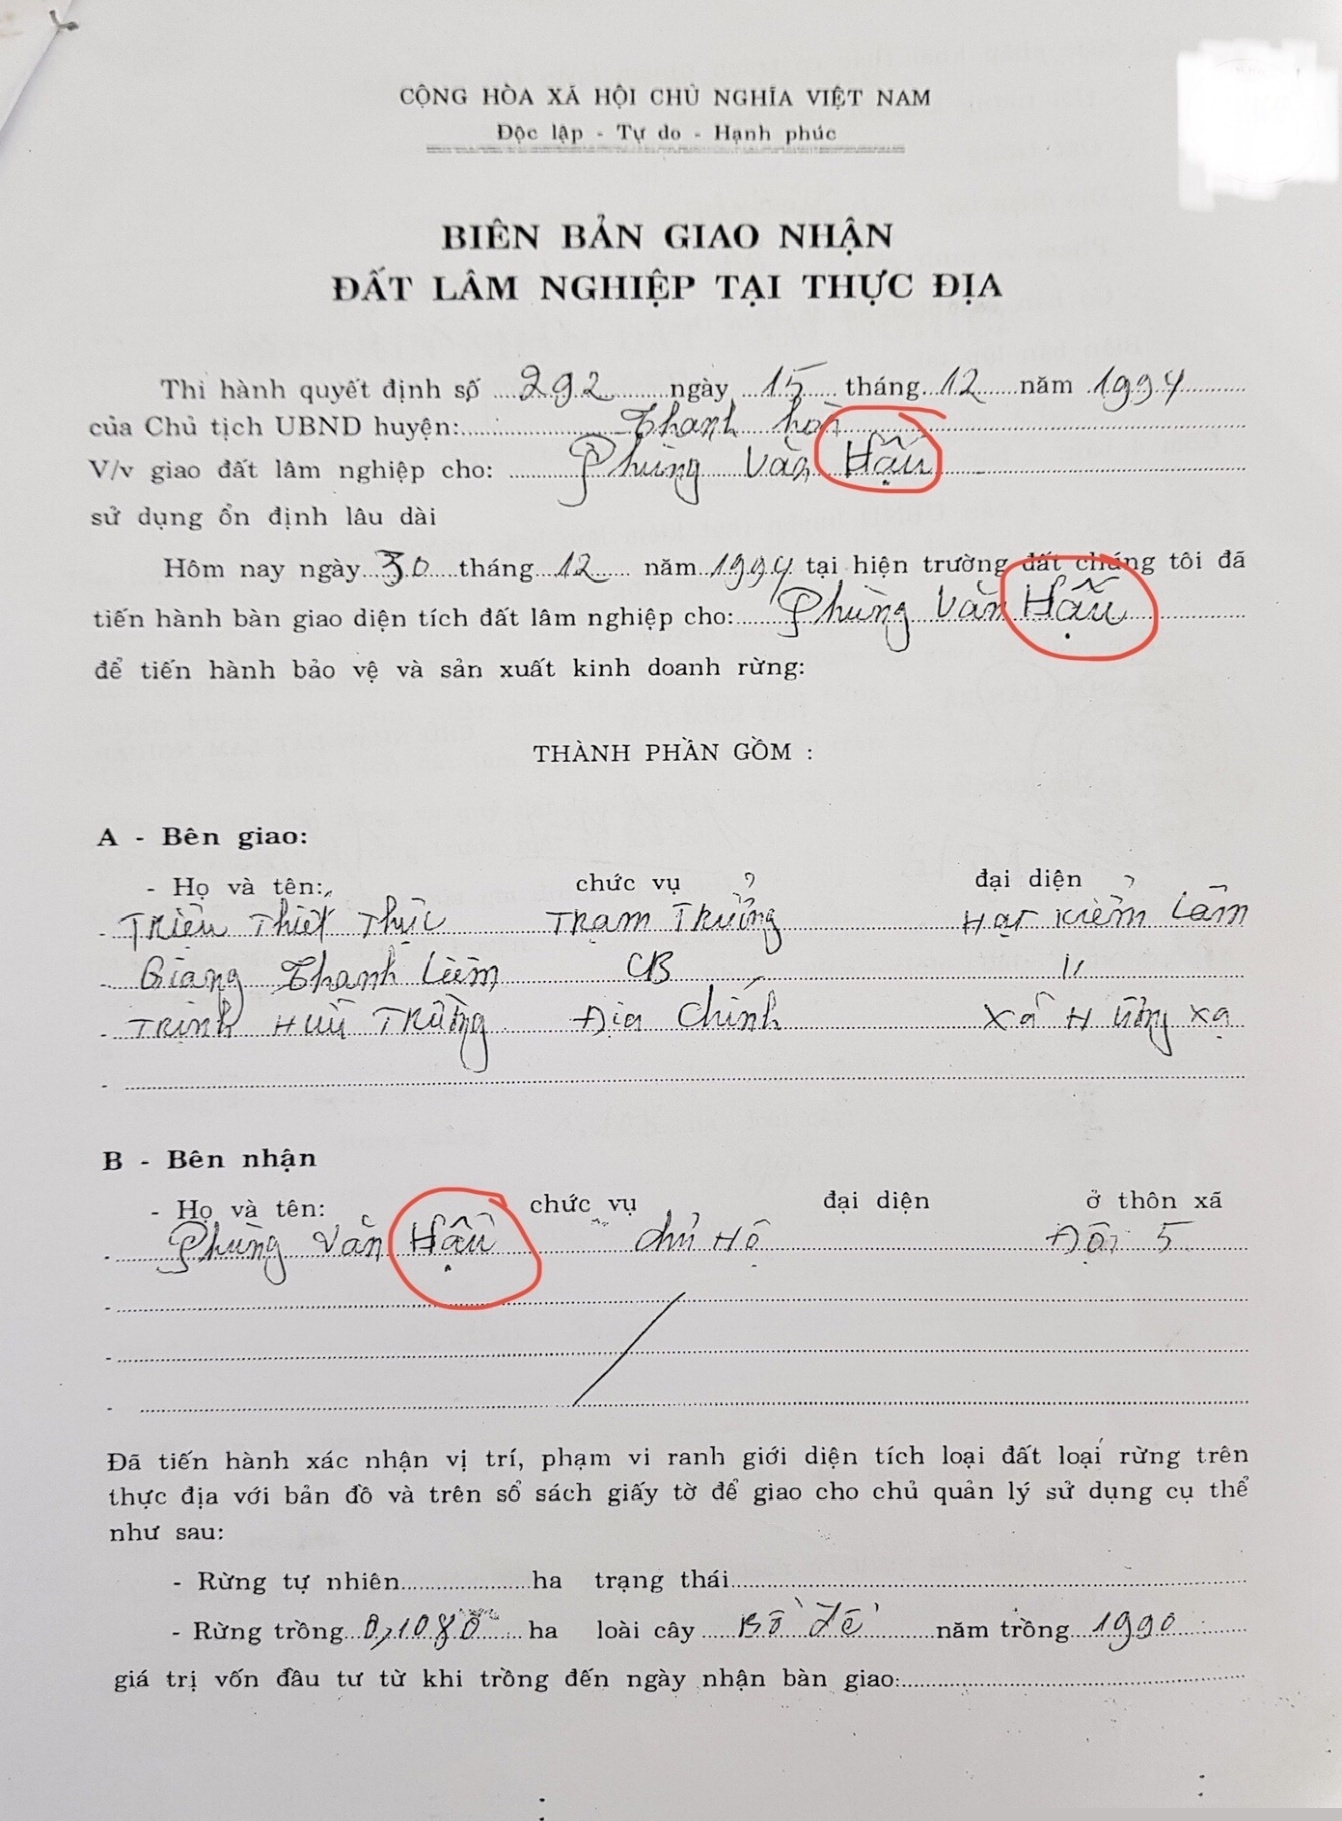 CỘNG HÒA XÃ HỘI CHỦ NGHĨA VIỆT NAM
Độc lập - Tự do - Hạnh phúc
BIÊN BẢN GIAO NHẬN
ĐẤT LÂM NGHIỆP TẠI THỰC ĐỊA
Thi hành quyết định số 292 ngày 15 tháng 12 năm 1994
của Chủ tịch UBND huyện: Thanh hoà
V/v giao đất lâm nghiệp cho: Phùng Văn Hậu
sử dụng ổn định lâu dài
Hôm nay ngày 30 tháng 12 năm 1994 tại hiện trường đất chúng tôi đã
tiến hành bàn giao diện tích đất lâm nghiệp cho: Phùng Văn Hậu
để tiến hành bảo vệ và sản xuất kinh doanh rừng:
THÀNH PHẦN GỒM :
A - Bên giao:
- Họ và tên: chức vụ đại diện
- Triệu Thiết Thực Trạm Trưởng Hạt Kiểm Lâm
- Giang Thanh Liêm CB 11
- Trịnh Hữu Trường Địa Chính Xã Hương xạ
-
B - Bên nhận
- Họ và tên: chức vụ đại diện ở thôn xã
- Phùng Văn Hậu Chủ Hộ Đội 5
-
-
-
Đã tiến hành xác nhận vị trí, phạm vi ranh giới diện tích loại đất loại rừng trên
thực địa với bản đồ và trên sổ sách giấy tờ để giao cho chủ quản lý sử dụng cụ thể
như sau:
- Rừng tự nhiên ha trạng thái
- Rừng trồng 0,1080 ha loài cây Bồ Đề năm trồng 1990
giá trị vốn đầu tư từ khi trồng đến ngày nhận bàn giao: